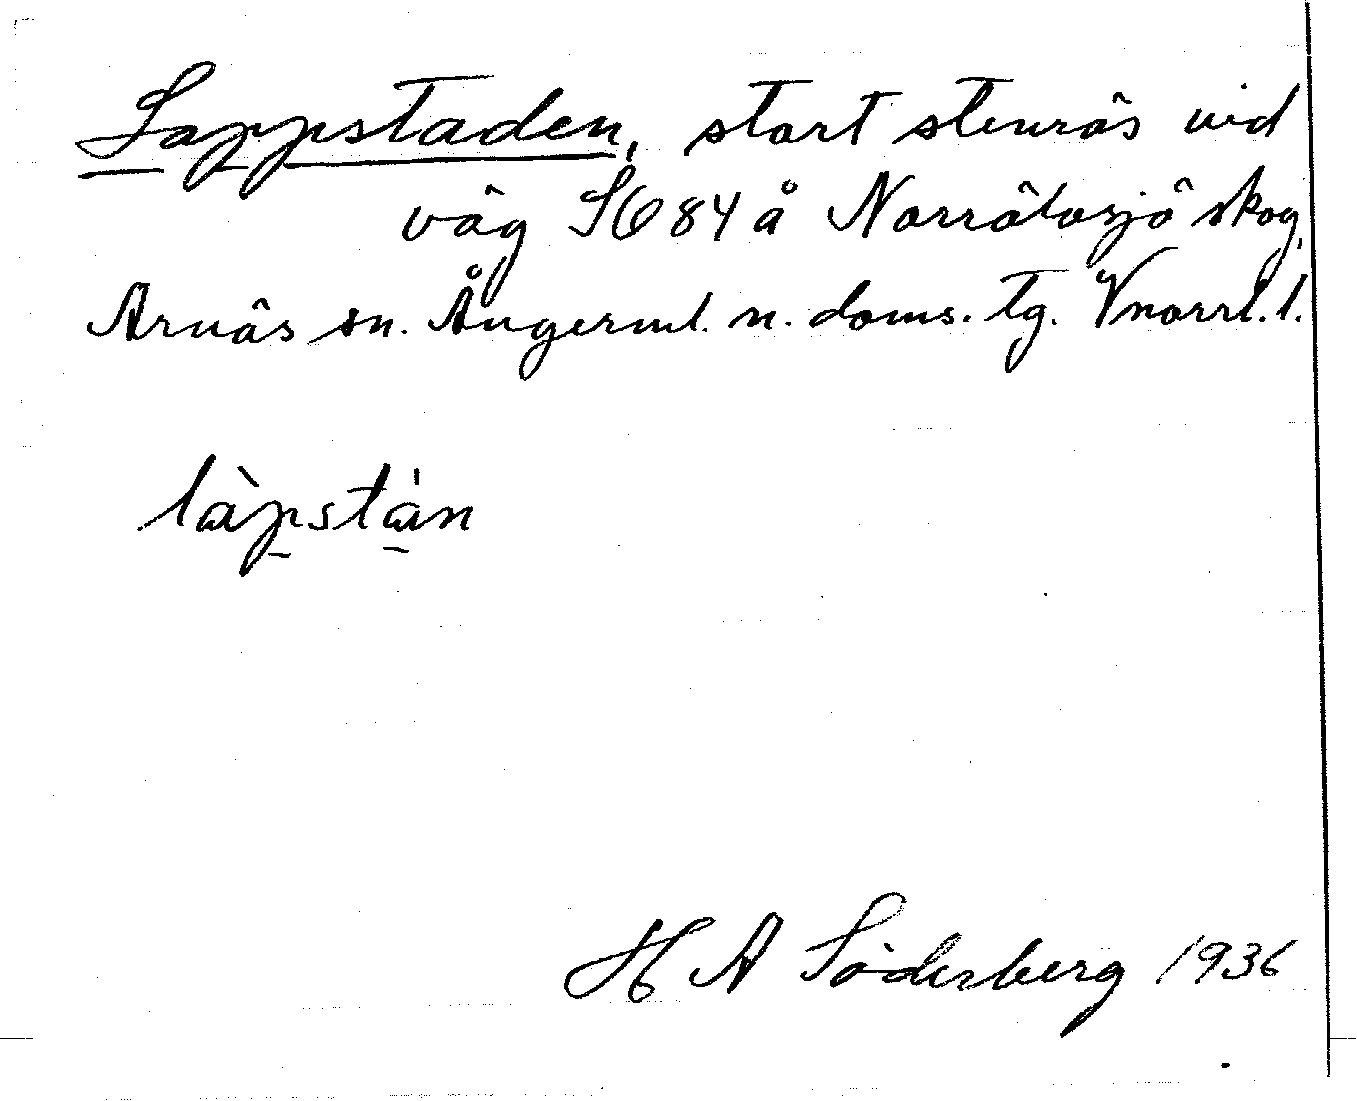 Lappstaden, stort stenrös vid
väg SO 84 å Norrätosjö skog,
Arnäs sn. Ångerml. n. doms. tg. Vnorrl. l.
làpstàn
H A Söderberg 1936